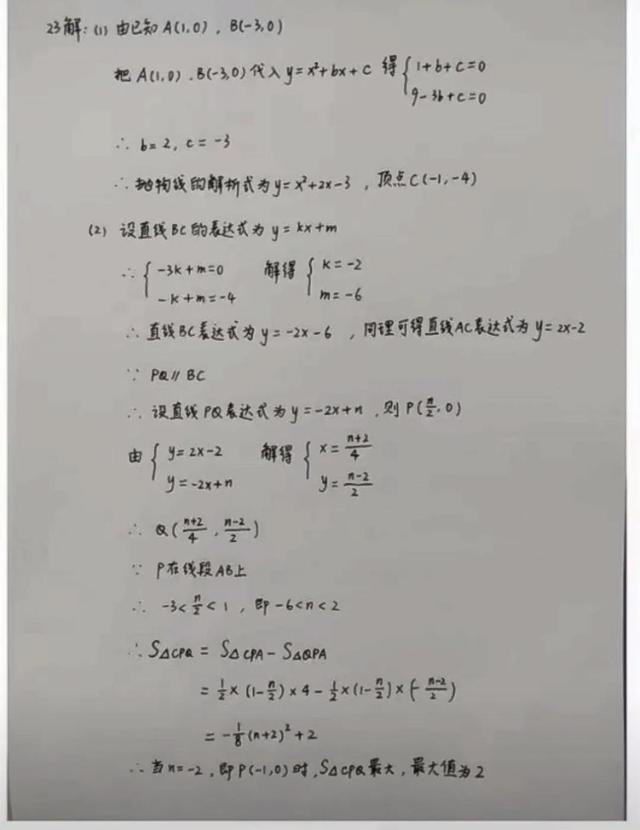 23解:(1) 由已知A(1,0), B(-3,0)
把A(1,0)、B(-3,0)代入y=x²+bx+c 得{1+b+c=0
9-3b+c=0
∴ b=2, c=-3
∴ 抛物线的解析式为y=x²+2x-3, 顶点C(-1,-4)
(2) 设直线BC的表达式为y=kx+m
∴ {-3k+m=0 解得 {k=-2
-k+m=-4 m=-6
∴ 直线BC表达式为y=-2x-6, 同理可得直线AC表达式为y=2x-2
∵ PQ∥BC
∴ 设直线PQ表达式为y=-2x+n, 则P(n/2,0)
由 {y=2x-2 解得 {x=(n+2)/4
y=-2x+n y=(n-2)/2
∴ Q((n+2)/4, (n-2)/2)
∵ P在线段AB上
∴ -3<n/2<1, 即-6<n<2
∴ S△CPQ = S△CPA - S△QPA
= 1/2×(1-n/2)×4-1/2×(1-n/2)×(-(n-2)/2)
= -1/8(n+2)²+2
∴ 当n=-2, 即P(-1,0)时, S△CPQ最大, 最大值为2